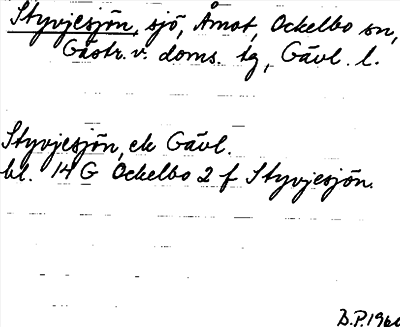 Styvjesjön, sjö, Åmot, Ockelbo sn,
Gästr. v. doms. tg, Gävl. l.
Styvjesjön, ek Gävl.
bl. 14 G Ockelbo 2 f Styvjesjön.
B.P. 196